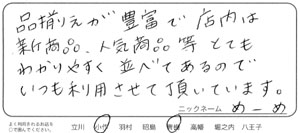 品揃えが豊富で店内は
新商品、人気商品等とても
わかりやすく並べてあるので
いつも利用させて頂いています。
ニックネーム めーめ
よく利用されるお店を
○で囲んでください。 立川 小作 羽村 昭島 青梅 高幡 堀之内 八王子